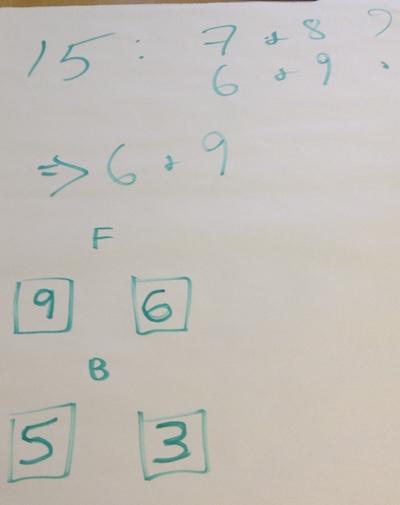 15 : 7 + 8 ?
6 + 9
⇒ 6 + 9
F
9 6
B
5 3